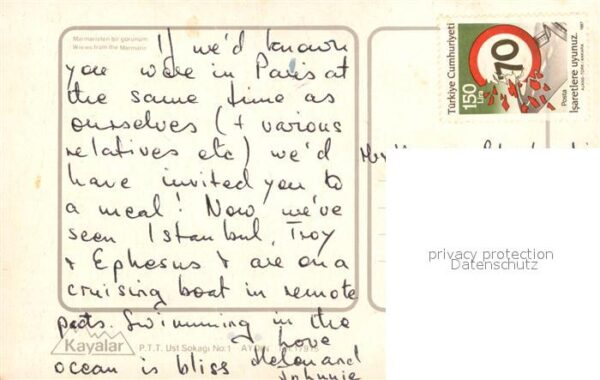 Marmaristen bir görünüm
Wiews from the Marmaris
If we'd known
you were in Paris at
the same time as
ourselves (+ various
relatives etc) we'd
have invited you to
a meal! Now we've
seen Istanbul, Troy
+ Ephesus & are on a
cruising boat in remote
parts. Swimming in the
ocean is bliss
Love
Helen and
Johnnie
Kayalar
P.T.T. Üst Sokağı No: 1 AYDIN
Türkiye Cumhuriyeti
150
Lira
70
Posta
İşaretlere uyunuz.
1987
privacy protection
Datenschutz